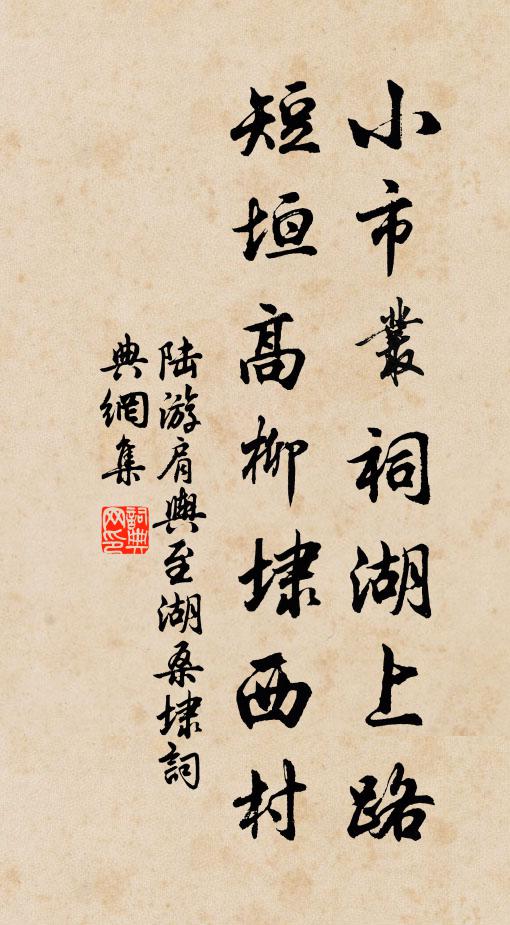 小市叢祠湖上路
短垣高柳埭西村
陸游肩輿至湖桑埭詞
典網集
詞典網印